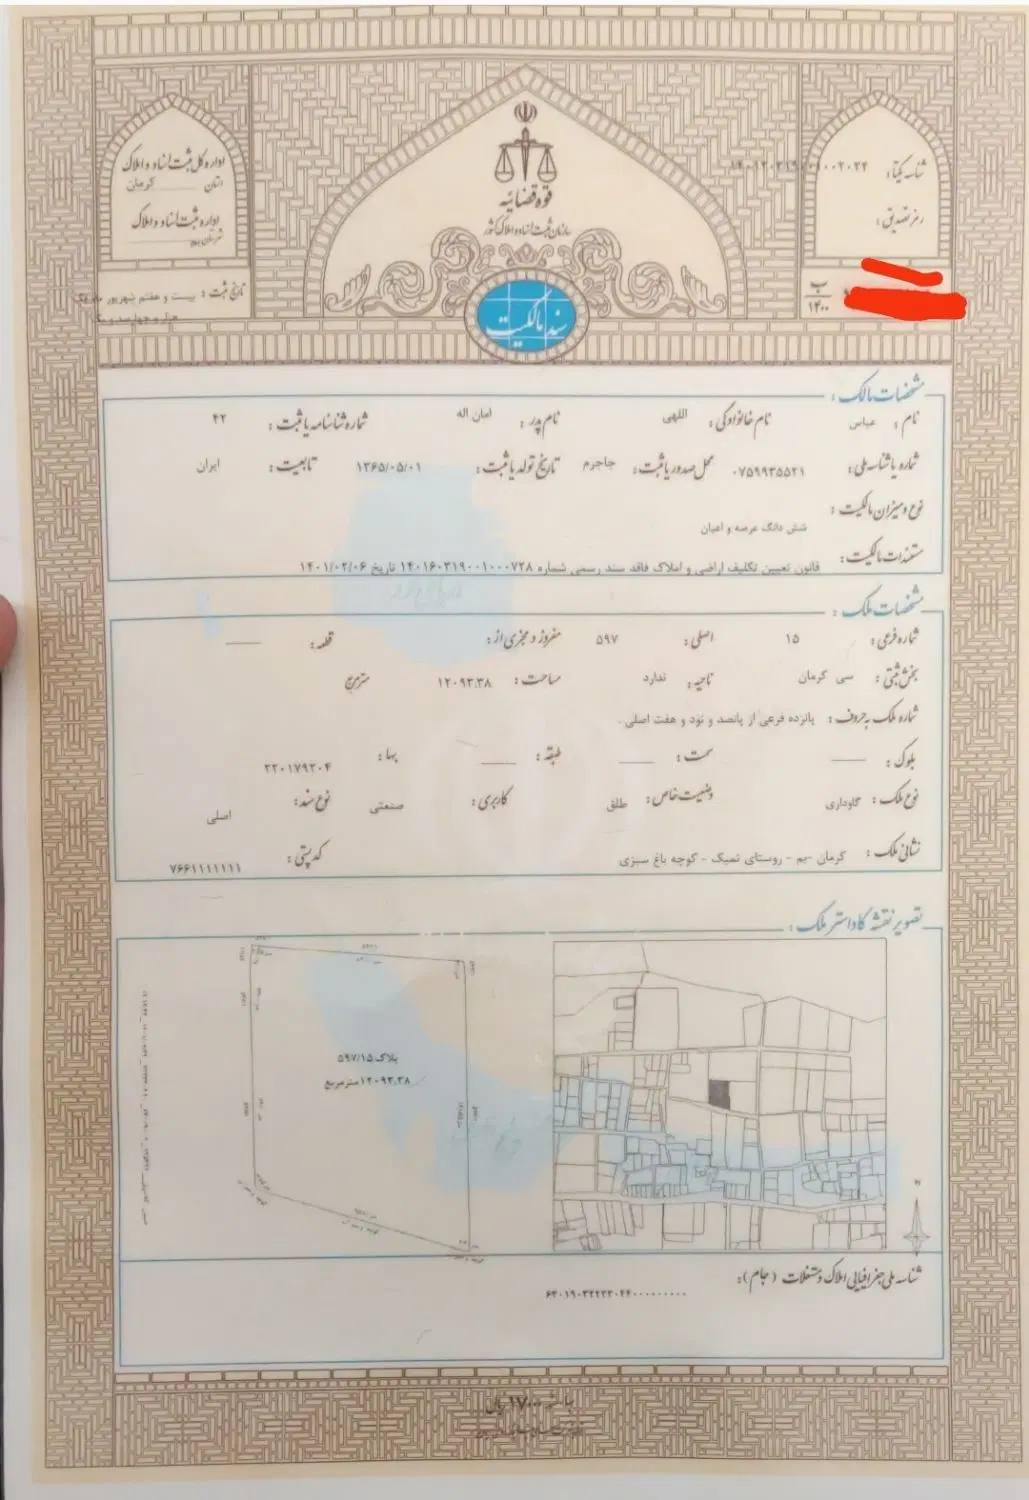 قوه قضائیه
سازمان ثبت اسناد و املاک کشور
سند مالکیت
شناسه یکتا:
رمز تصدیق:
ب
۱۴۰۰
اداره کل ثبت اسناد و املاک
استان کرمان
اداره ثبت اسناد و املاک
شهرستان بم
تاریخ ثبت: بیست و هفتم شهریور ماه یک
هزار و چهارصد و یک
مشخصات مالک:
نام: عباس نام خانوادگی: اللهی نام پدر: امان اله شماره شناسنامه یا ثبت: ۴۲
شماره یا شناسه ملی: ۰۷۵۹۹۳۵۵۲۱ محل صدور یا ثبت: جاجرم تاریخ تولد یا ثبت: ۱۳۶۵/۰۵/۰۱ تابعیت: ایران
نوع و میزان مالکیت:
شش دانگ عرصه و اعیان
مستندات مالکیت: قانون تعیین تکلیف اراضی و املاک فاقد سند رسمی شماره ۱۴۰۱۶۰۳۱۹۰۰۱۰۰۰۷۲۸ تاریخ ۱۴۰۱/۰۲/۰۶
مشخصات ملک:
شماره فرعی: ۱۵ اصلی: ۵۹۷ مفروز و مجزی از: قطعه:
بخش ثبتی: سی کرمان ناحیه: ندارد مساحت: ۱۲۰۹۳.۳۸ مترمربع
شماره ملک به حروف: پانزده فرعی از پانصد و نود و هفت اصلی.
بلوک: سمت: طبقه: بها: ۲۲۰۱۷۹۲۰۴
نوع ملک: گاوداری وضعیت خاص: طلق کاربری: صنعتی نوع سند: اصلی
نشانی ملک: کرمان - بم - روستای نمیک - کوچه باغ سبزی کد پستی: ۷۶۶۱۱۱۱۱۱۱
تصویر نقشه کاداستر ملک:
پلاک ۵۹۷/۱۵
۱۲۰۹۳.۳۸ مترمربع
شناسه ملی جغرافیایی املاک و مستغلات (جام):